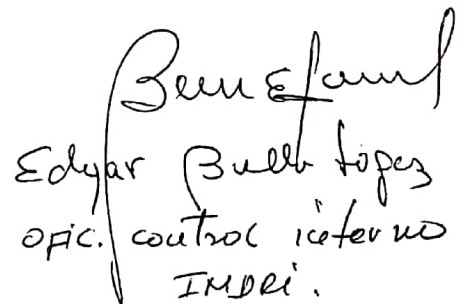 Edgar Bullo Lopez
Ofic. control interno
IMDRI.